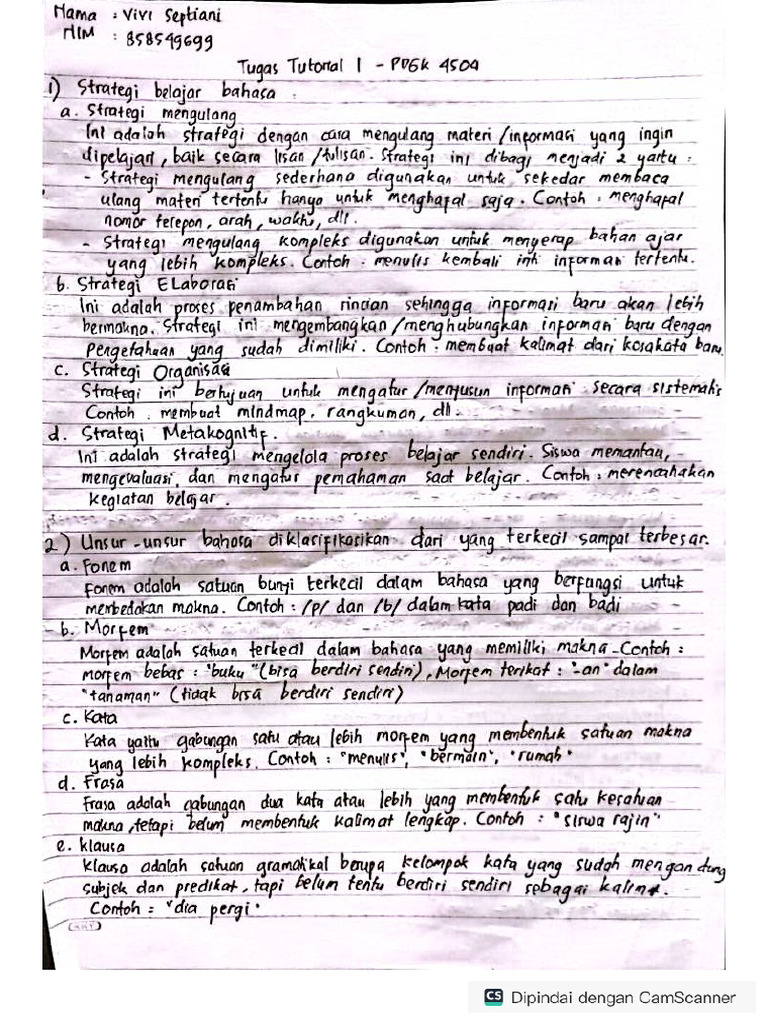 Nama : Vivi Septiani
NIM : 858549699
Tugas Tutorial 1 - PDGK 4504
1) Strategi belajar bahasa :
a. Strategi mengulang
Ini adalah strategi dengan cara mengulang materi/informasi yang ingin
dipelajari, baik secara lisan/tulisan. Strategi ini dibagi menjadi 2 yaitu :
- Strategi mengulang sederhana digunakan untuk sekedar membaca
ulang materi tertentu hanya untuk menghapal saja. Contoh : menghapal
nomor telepon, arah, waktu, dll.
- Strategi mengulang kompleks digunakan untuk menyerap bahan ajar
yang lebih kompleks. Contoh : menulis kembali inti informasi tertentu.
b. Strategi Elaborasi
Ini adalah proses penambahan rincian sehingga informasi baru akan lebih
bermakna. Strategi ini mengembangkan/menghubungkan informasi baru dengan
Pengetahuan yang sudah dimiliki. Contoh : membuat kalimat dari kosakata baru.
c. Strategi Organisasi
Strategi ini bertujuan untuk mengatur/menyusun informasi secara sistematis
Contoh : membuat mindmap, rangkuman, dll.
d. Strategi Metakognitif.
Ini adalah strategi mengelola proses belajar sendiri. Siswa memantau,
mengevaluasi, dan mengatur pemahaman saat belajar. Contoh : merencanakan
kegiatan belajar.
2) Unsur-unsur bahasa diklasifikasikan dari yang terkecil sampai terbesar.
a. Fonem
Fonem adalah satuan bunyi terkecil dalam bahasa yang berfungsi untuk
membedakan makna. Contoh : /p/ dan /b/ dalam kata padi dan badi
b. Morfem
Morfem adalah satuan terkecil dalam bahasa yang memiliki makna. Contoh :
morfem bebas : "buku" (bisa berdiri sendiri), Morfem terikat : "-an" dalam
"tanaman" (tidak bisa berdiri sendiri)
c. Kata
Kata yaitu gabungan satu atau lebih morfem yang membentuk satuan makna
yang lebih kompleks. Contoh : "menulis", "bermain", "rumah"
d. Frasa
Frasa adalah gabungan dua kata atau lebih yang membentuk satu kesatuan
makna, tetapi belum membentuk kalimat lengkap. Contoh : "siswa rajin"
e. Klausa
Klausa adalah satuan gramatikal berupa kelompok kata yang sudah mengandung
subjek dan predikat, tapi belum tentu berdiri sendiri sebagai kalimat.
Contoh : "dia pergi"
CS Dipindai dengan CamScanner